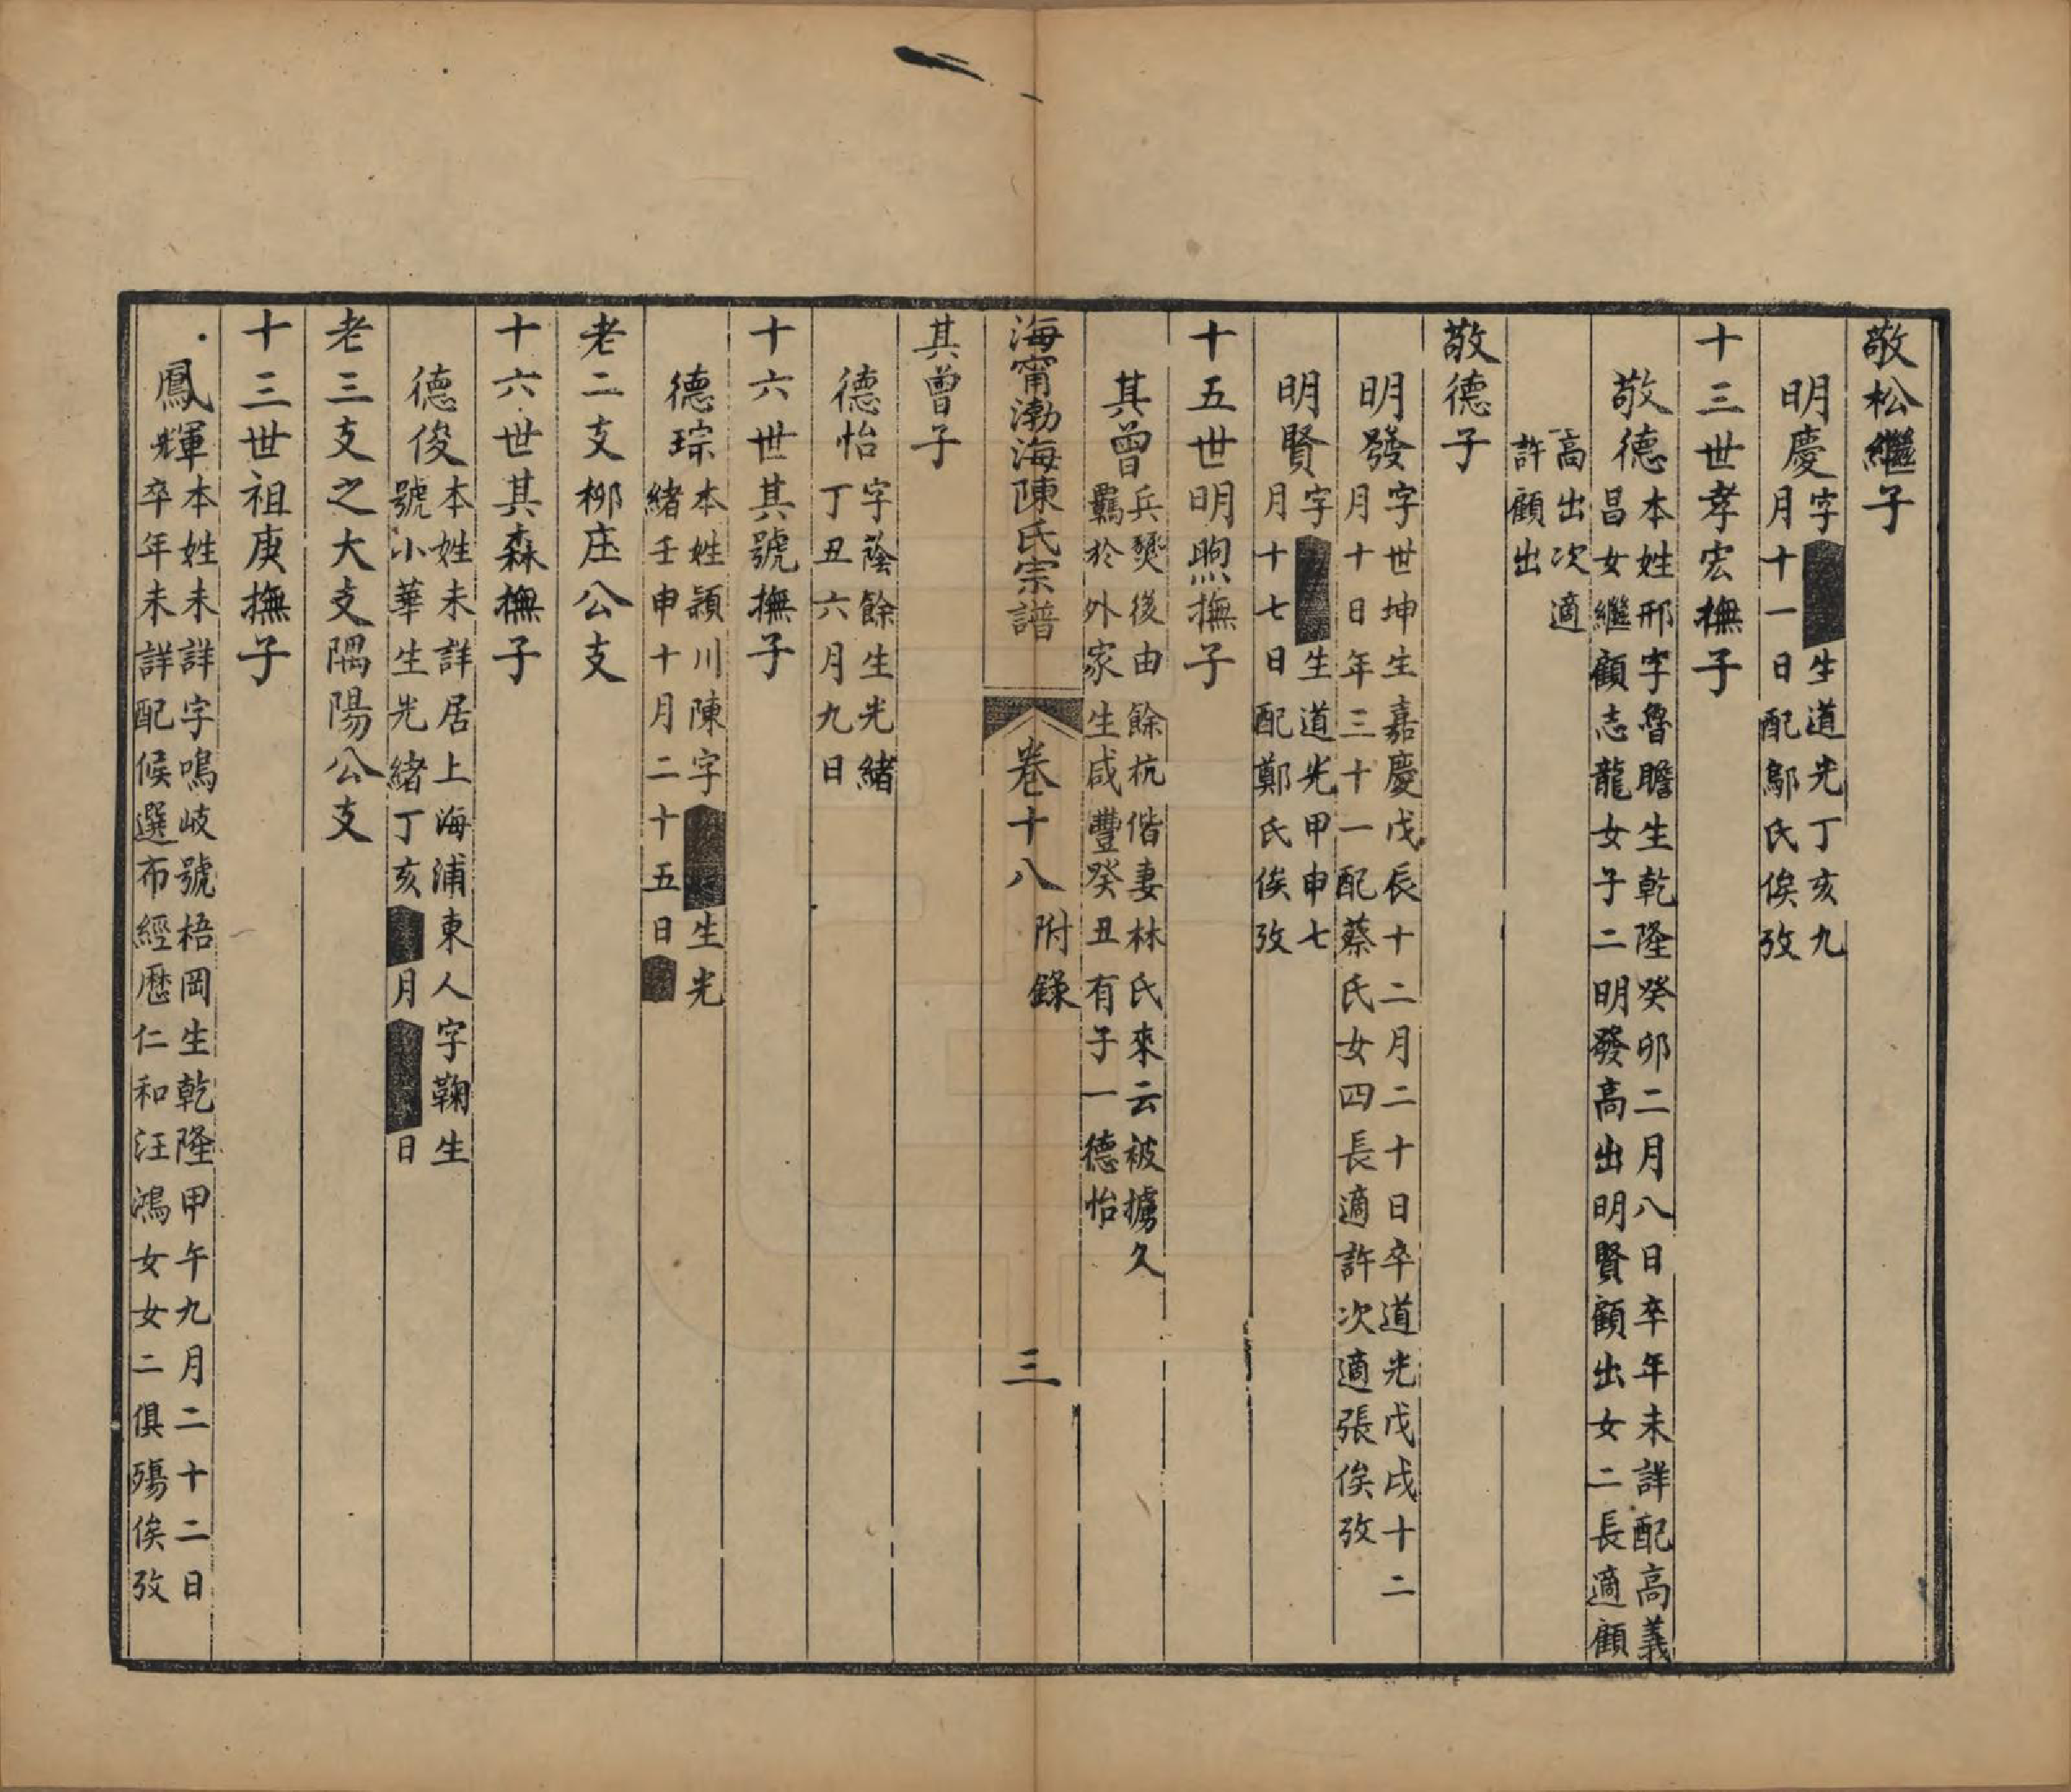 敬松繼子
明慶
字■■生道光丁亥九
月十一日配鄔氏俟攷
十三世孝宏撫子
敬德
本姓邢字魯瞻生乾隆癸卯二月八日卒年未詳配高義
昌女繼顧志龍女子二明發高出明賢顧出女二長適顧
高出次適
許顧出
敬德子
明發
字世坤生嘉慶戊辰十二月二十日卒道光戊戌十二
月十日年三十一配蔡氏女四長適許次適張俟攷
明賢
字■■生道光甲申七
月十七日配鄭氏俟攷
十五世明煦撫子
其曾
兵燹後由餘杭偕妻林氏來云被擄久
羈於外家生咸豐癸丑有子一德怡
海甯渤海陳氏宗譜 卷十八 附錄 三
其曾子
德怡
字蔭餘生光緒
丁丑六月九日
十六世其號撫子
德琮
本姓潁川陳字■■生光
緒壬申十月二十五日■
老二支柳庄公支
十六世其森撫子
德俊
本姓未詳居上海浦東人字鞠生
號小華生光緒丁亥■月■■日
老三支之大支隅陽公支
十三世祖庚撫子
鳳輝
本姓未詳字鳴岐號梧岡生乾隆甲午九月二十二日
卒年未詳配候選布經歷仁和汪鴻女女二俱殤俟攷